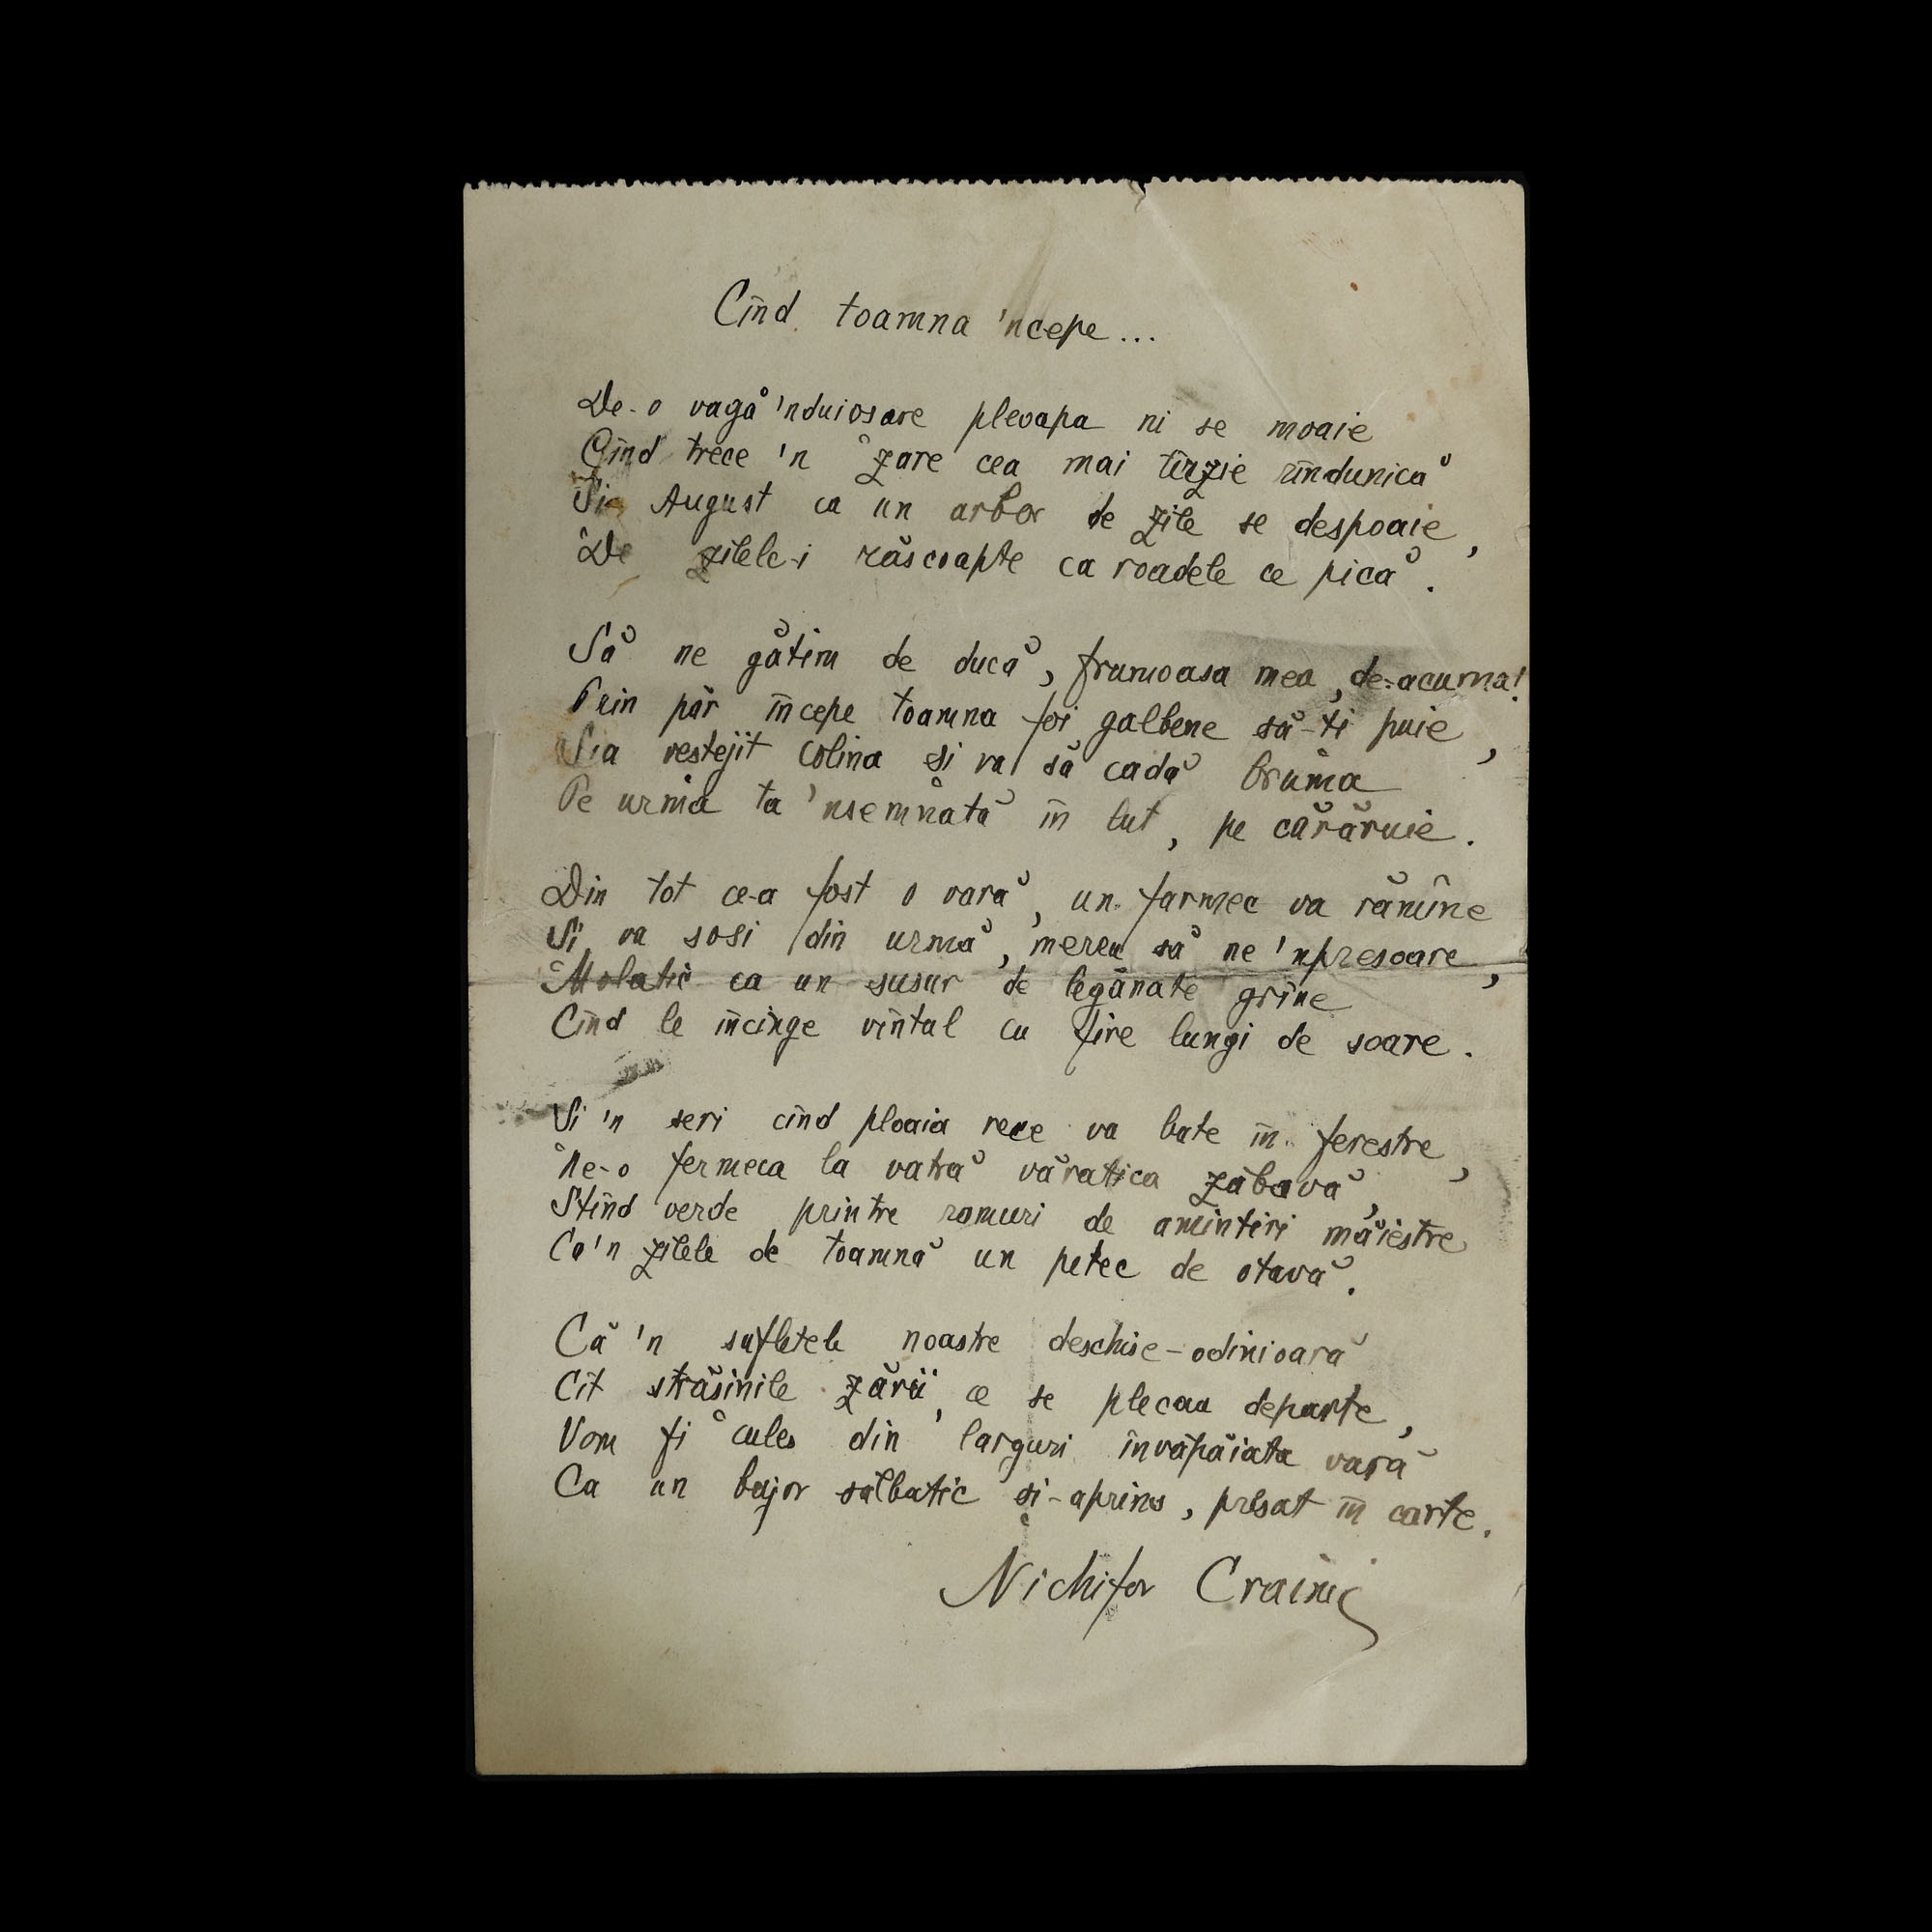 Cînd toamna 'ncepe...
De-o vagă 'nduioșare pleoapa ni se moaie
Cînd trece 'n zare cea mai tîrzie rîndunică
Și August ca un arbor de zile se despoaie,
De zilele-i răscoapte ca roadele ce pică.
Să ne gătim de ducă, frumoasa mea, de-acuma!
Prin păr începe toamna foi galbene să-ți puie,
S'a vestejit colina și va să cadă bruma
Pe urma ta 'nsemnată în lut, pe cărăruie.
Din tot ce-a fost o vară, un farmec va rămîne
Și va sosi din urmă, mereu să ne 'npresoare,
Molatic ca un susur de legănate grîne
Cînd le încinge vîntul cu fire lungi de soare.
Și 'n seri cînd ploaia rece va bate în ferestre,
Ne-o fermeca la vatră văratica zăbavă,
Stînd verde printre ramuri de amintiri măiestre
Ca'n zilele de toamnă un petec de otavă.
Că 'n sufletele noastre deschise-odinioară
Cît străsinile zării, ce se plecau departe,
Vom fi cules din larguri învăpăiata vară
Ca un bujor sălbatic și-aprins, presat în carte.
Nichifor Crainic